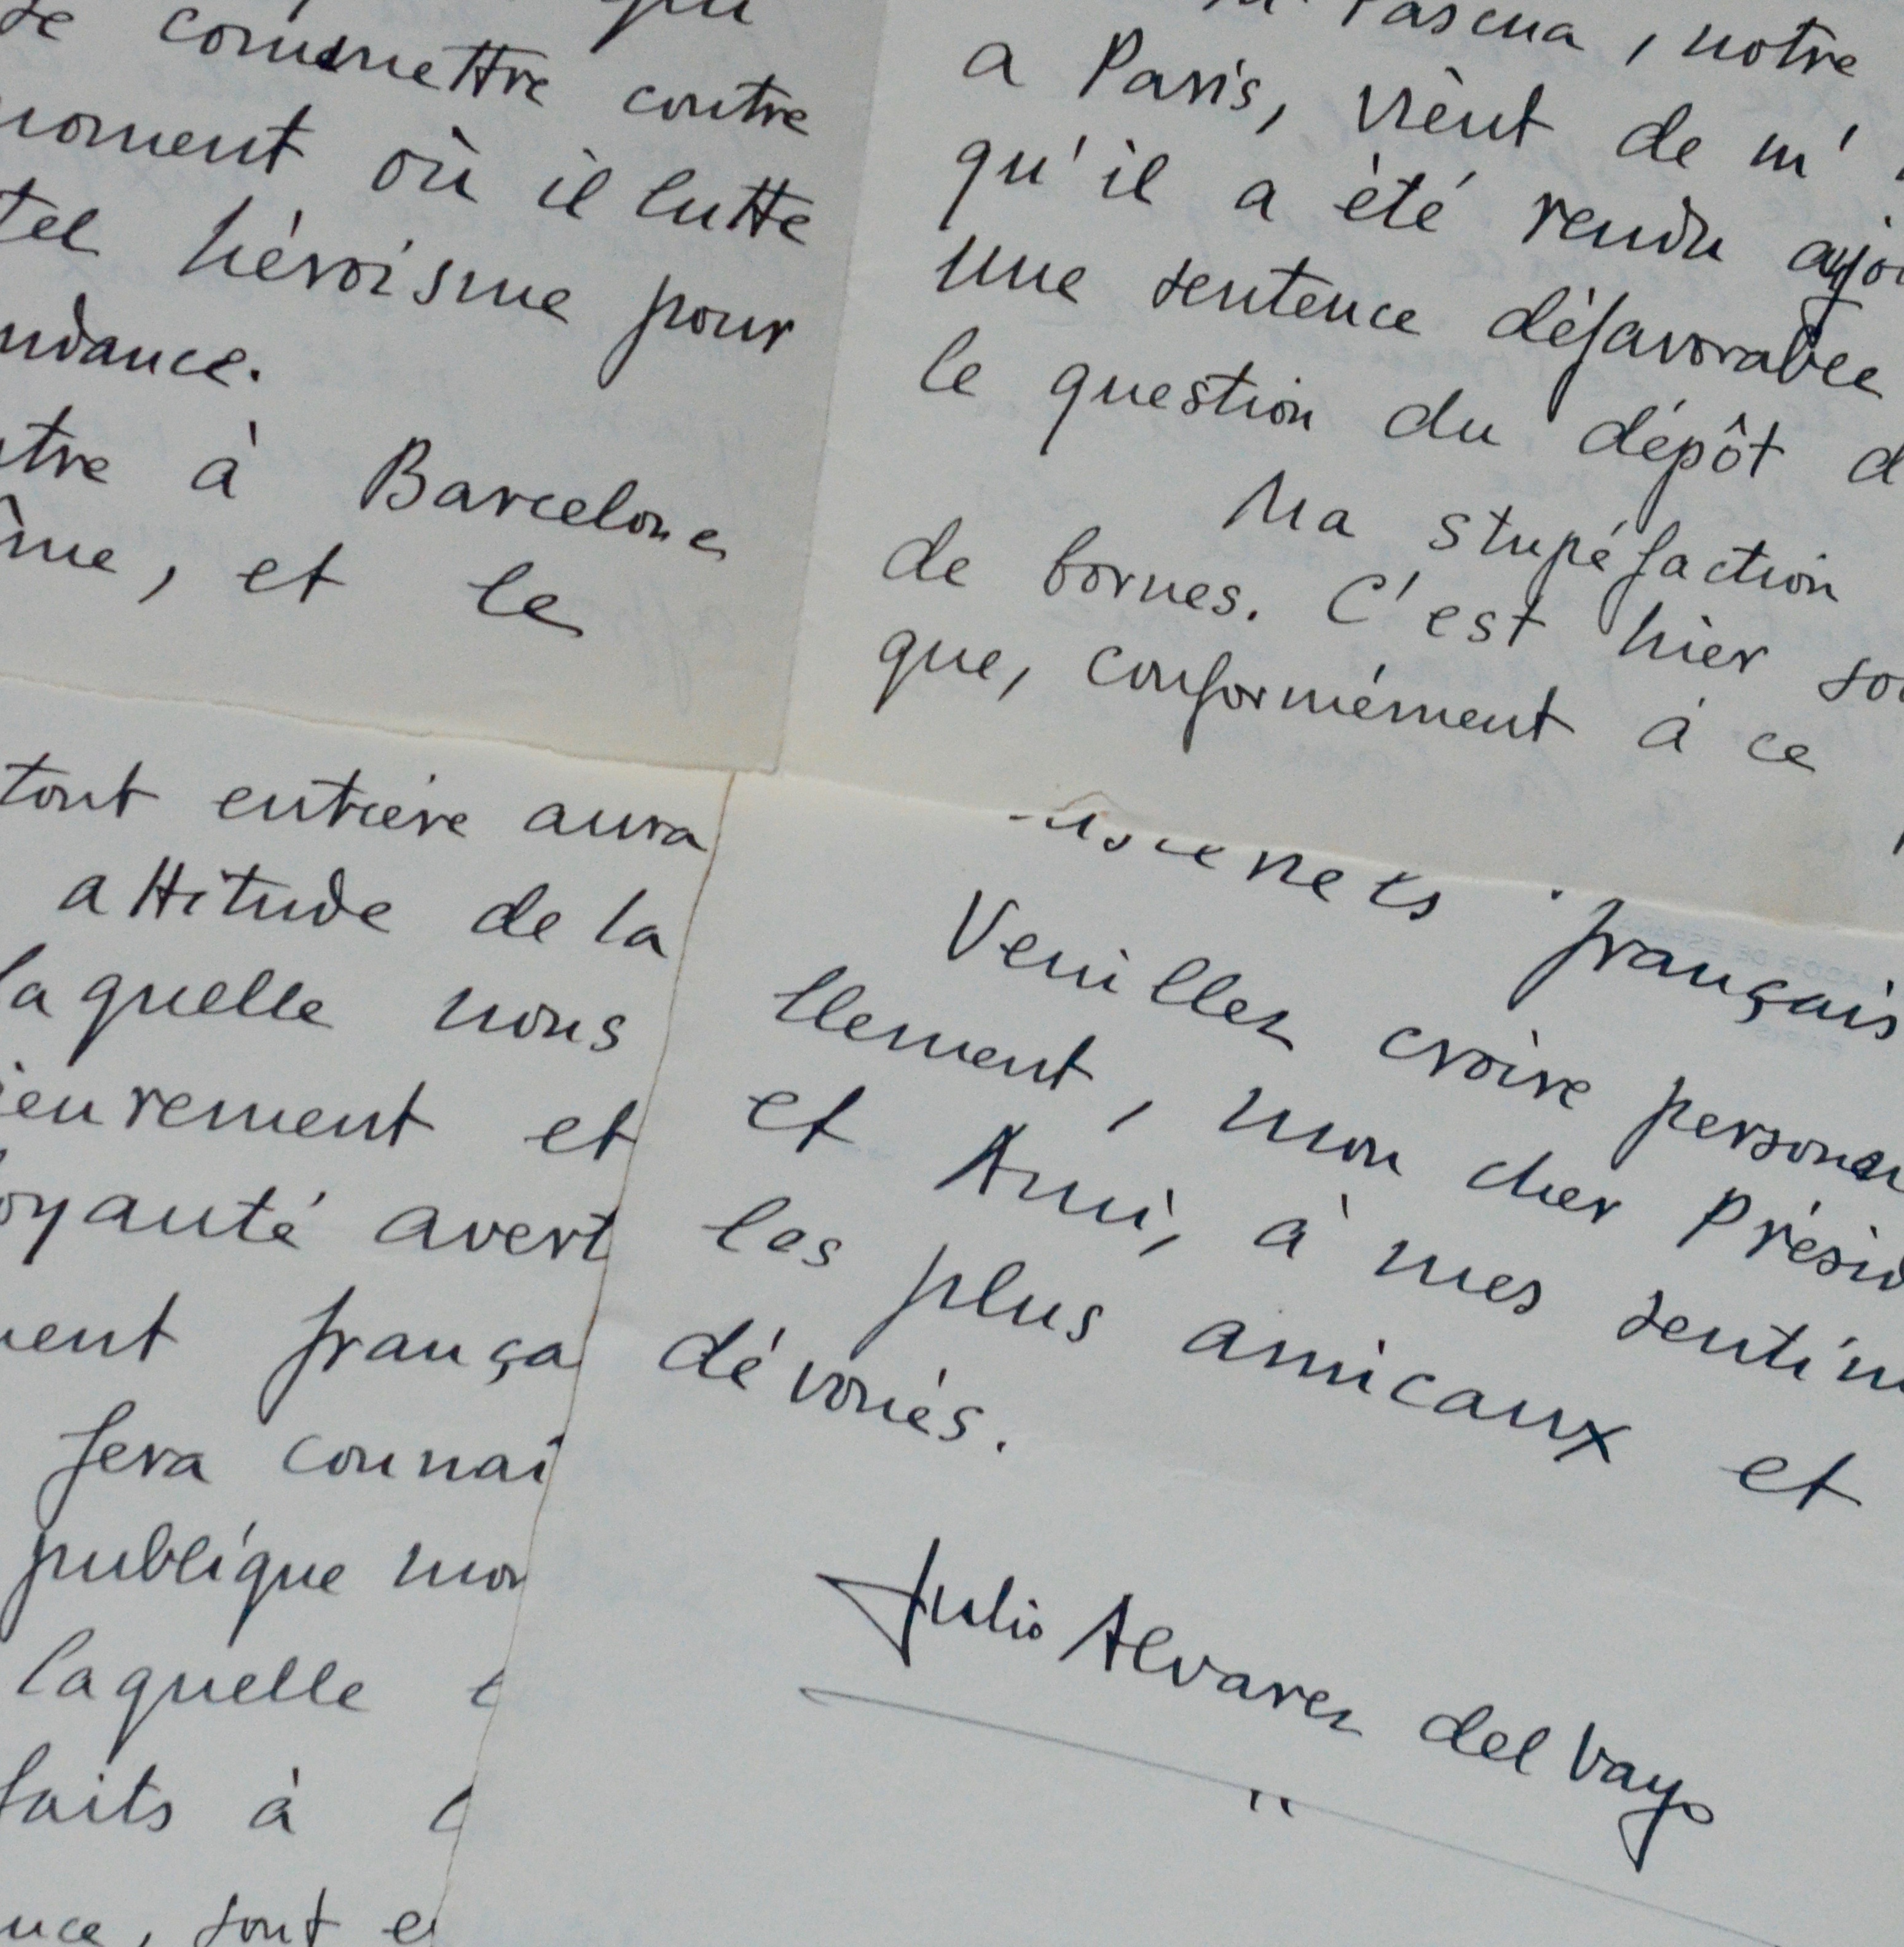 de commettre contre
moment où il lutte
tel héroïsme pour
ndance.
ntre à Barcelone
me, et le
Pascua, notre
a Paris, vient de m'
qu'il a été rendu aujo
une sentence défavorable
le question du dépôt d
Ma stupéfaction
de bornes. C'est hier so
que, conformément à ce
tout entière aura
attitude de la
laquelle nous
ieurement et
oyauté avert
ent frança
fera connai
publique mon
laquelle
faits à
nce, sont e
français
Veuillez croire personn
llement, mon cher Présid
et Ami, à mes sentim
les plus amicaux et
dévoués.
Julio Alvarez del Vayo